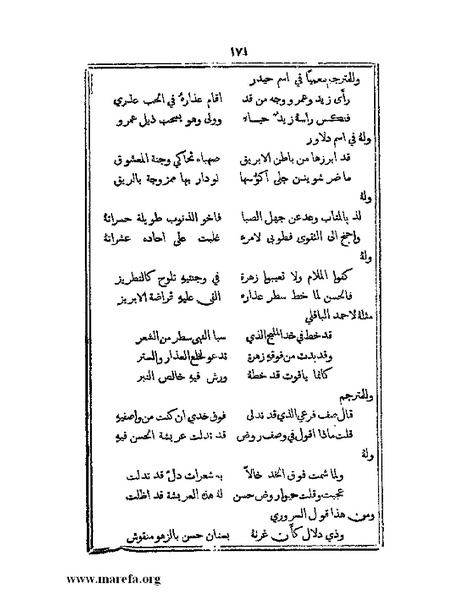 ١٧٤
وللمترجم معميًا في اسم حيدر
رأى زيد وعمرو وجه من قد اقام عذاره في الحب عذري
فنكس راسه زيد حياء وولى وهو يسحب ذيل عمرو
وله في اسم دلاور
قد ابرزها من باطن الابريق صهباء تحاكي وجنة المعشوق
ما ضر شويدن جلى اكؤسها لودار بها ممزوجة بالريق
وله
لذ بالمتاب وعد عن جهل الصبا فاخو الذنوب طويلة حسراته
واجنح الى التقوى فطوبى لامره غلبت على احاده عشراته
وله
كفوا الملام ولا تعيبوا زهرة في وجنتيه تلوح كالتطريز
فالحسن لما خط سطر عذاره القى عليه قراضة الابريز
مثله لاحمد الباقلي
قد خط في خد المليح الذي سبا النهى سطر من الشعر
وقد بدت من فوقه زهرة تدعو لخلع العذار والستر
كانما ياقوت قد خطه ورش فيه خالص التبر
وللمترجم
قال صف فرعي الذي قد تدلى فوق خدي ان كنت من واصفيه
قلت ماذا اقول في وصف روض قد تدلت عريشة الحسن فيه
وله
ولما شمت فوق الخد خالاً به شعرات دل قد تدلت
عجبت وقلت حبوا روض حسن له هذه العريشة قد اظلت
ومن هذا قول السروري
وذي دلال كأن غرته بستان حسن بالزهو منقوش
www.marefa.org